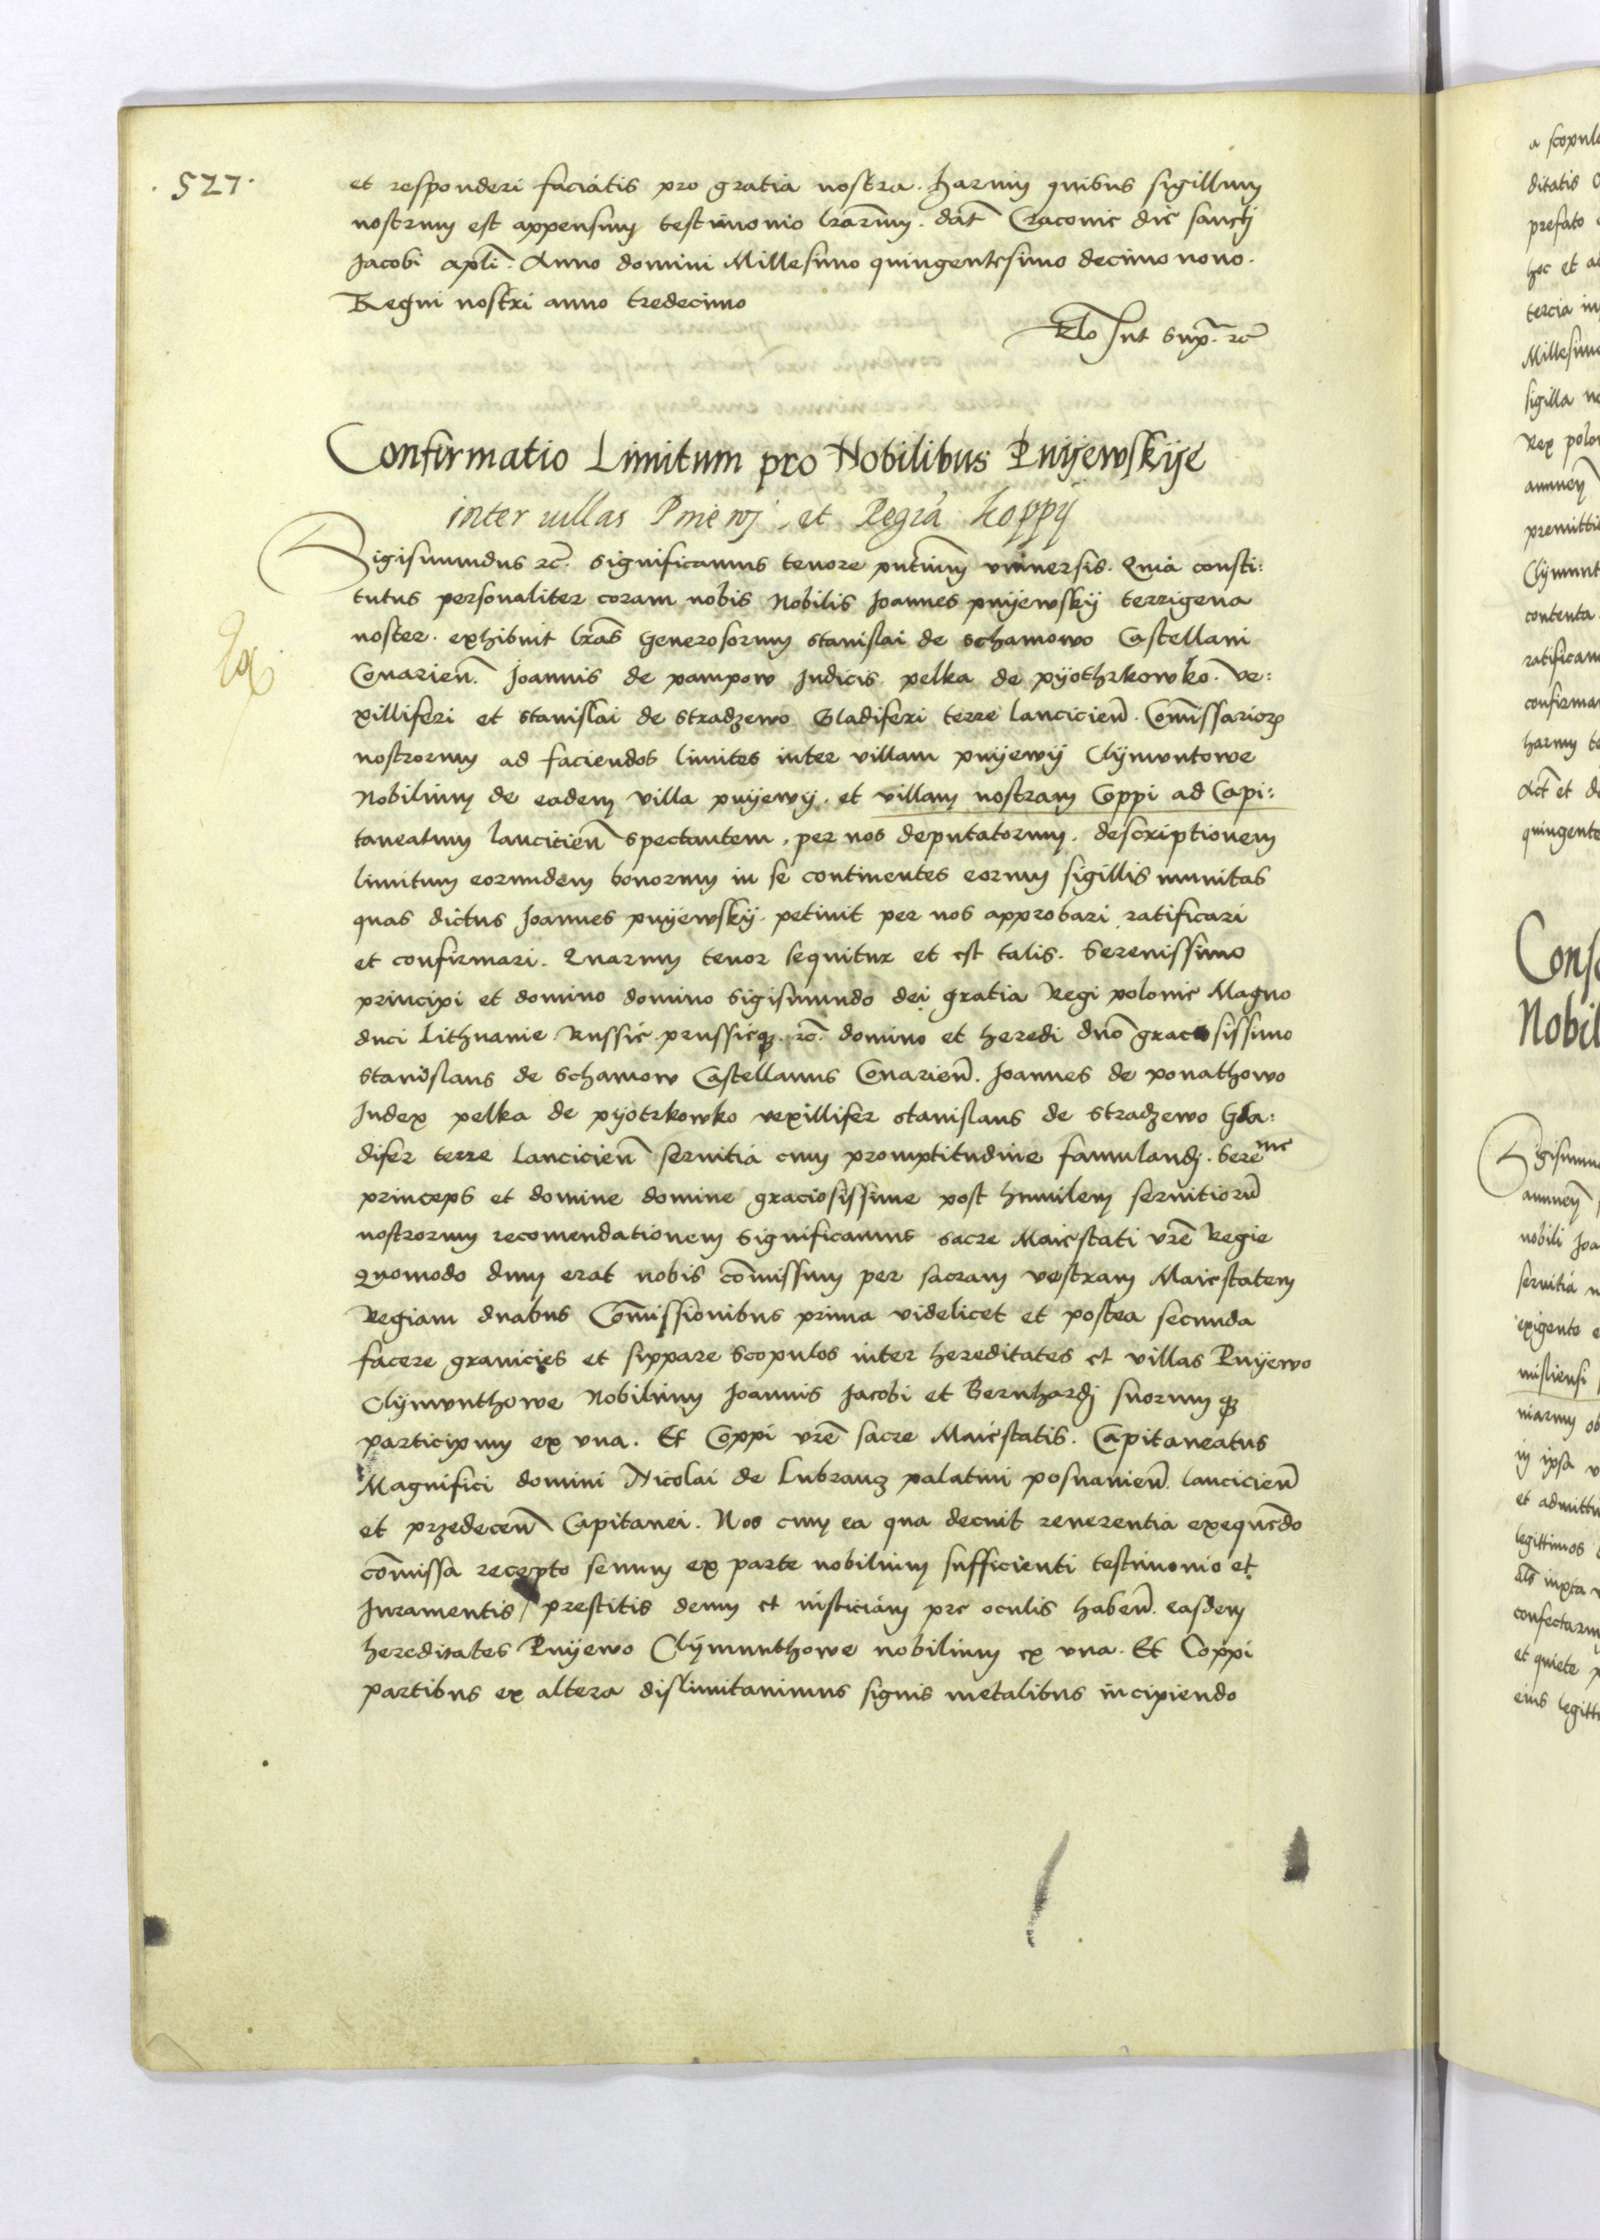 . 527 .
et responderi faciatis pro gratia nostra. Harum quibus sigillum
nostrum est appensum testimonio lrarum. dat Cracovie die sancti
Jacobi apli. Anno domini Millesimo quingentesimo decimo nono.
Regni nostri anno tredecimo
Rlo ut supra. rc
Confirmatio Limitum pro Nobilibus Pnijewskije
inter villas Pniewj et Regia Koppij
Sigismundus rc. significamus tenore pntium vniversis. Quia consti:
tutus personaliter coram nobis Nobilis Joannes pnijewskij terrigena
noster. exhibuit lras Generosorum stanislai de schamowo Castellani
Conarien. Joannis de pampow Judicis pelka de pyothrkowko. ve:
xilliferi et stanislai de stradzewo Gladiferi terre lancicien. Comissarior
nostrorum ad faciendos limites inter villam pnijewij Clijmuntowe
Nobilium de eadem villa pnijewij. et villam nostram Coppi ad Capi:
taneatum lancicien spectantem, per nos deputatorum. descriptionem
limitum eorundem bonorum in se continentes eorum sigillis munitas
quas dictus Joannes pnijewskij petiuit per nos approbari ratificari
et confirmari. Quarum tenor sequitur et est talis. Serenissimo
principi et domino domino Sigismundo dei gratia Regi polonie Magno
duci Lithuanie Russie prussieq. rc. domino et heredi dno graciosissimo
Stanislaus de Schamow Castellanus Conarien. Joannes de ponathowo
Judex pelka de pyotrkowko vexillifer stanislaus de stradzewo Gla:
difer terre Lancicien seruitia cum promptitudine famulandj. Sereme
princeps et domine domine graciosissime post humilem seruitioru
nostrorum recomendationem significamus sacre Maiestati vre Regie
Quomodo dum erat nobis comissum per sacram vestram Maiestatem
Regiam duabus Comissionibus prima videlicet et postea secunda
facere granicies et sippare scopulos inter hereditates et villas Pnijewo
Clijmunthowe Nobilium Joannis Jacobi et Bernhardj suorumq
participum ex vna. Et Coppi vre sacre Maiestatis. Capitaneatus
Magnifici domini Nicolai de Lubrancz palatini posnanien. lancicien
et przedecen Capitanei. Nos cum ea qua decuit reuerentia exequedo
comissa recepto senum ex parte nobilium sufficienti testimonio et
Juramentis prestitis demum et iusticiam pre oculis haben. easdem
hereditates Pnijewo Clijmunthowe nobilium ex vna. Et Coppi
partibus ex altera dislimitauimus signis metalibus incipiendo
a scopul
ditatis
prefato
hoc et a
tercia in
Millesimo
sigilla
Rex polo
annuen
premitti
Clijmunt
contenta
ratifican
confirma
harum te
Act et d
quingente
Conf
Nobil
Sigismun
annuen
nobili Joa
seruitia
exigente
misliensi
niarum ob
in ipsa
et admittu
legittimos
als iuxta
confectarum
et quiete
eius legitt